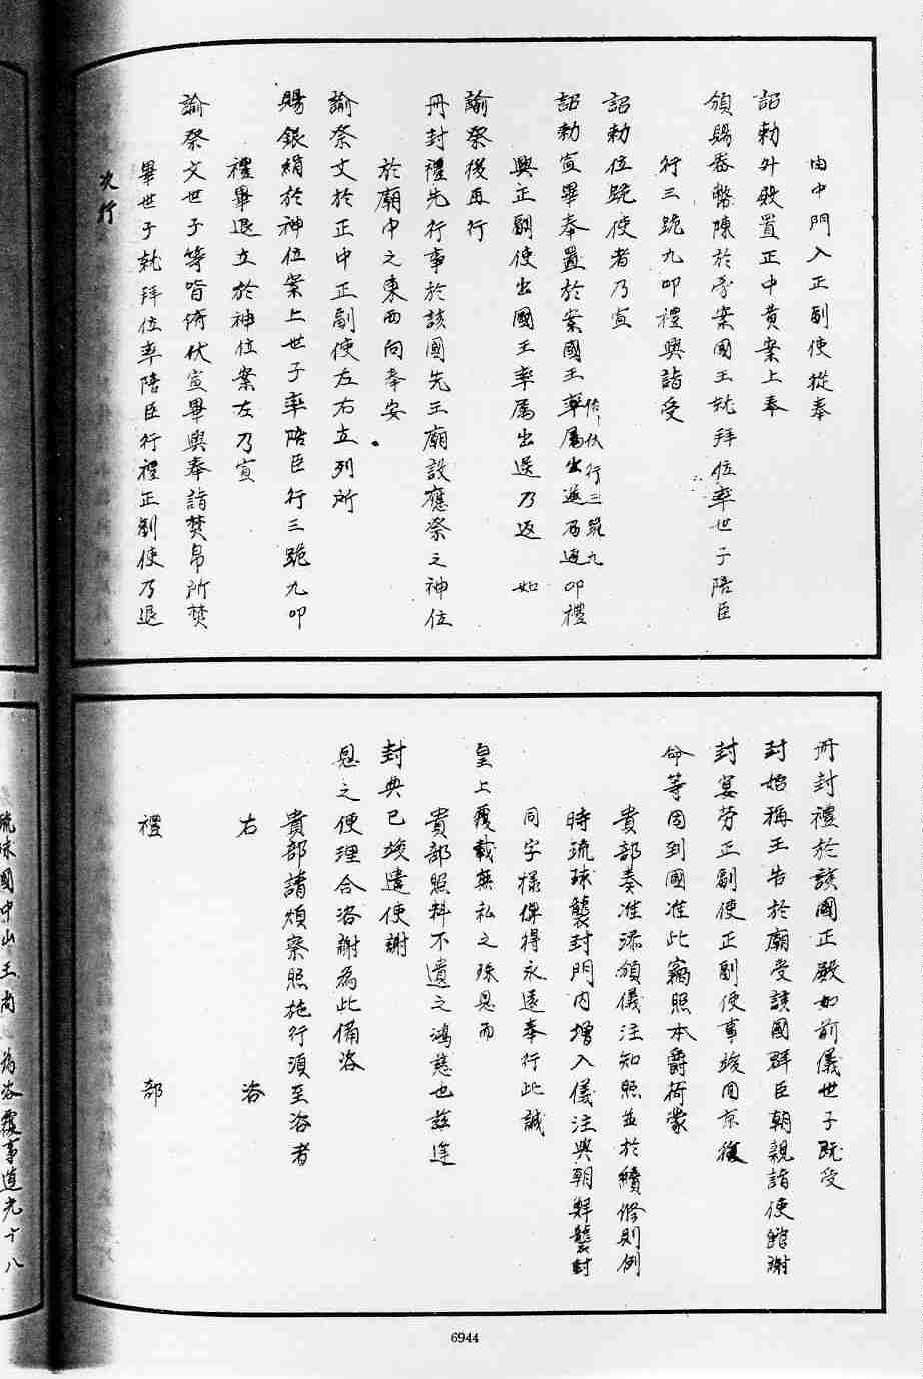 由中門入正副使從奉
詔勅外殿置正中黃案上奉
頒賜器幣陳於旁案國王就拜位率世子陪臣
行三跪九叩禮興詣受
詔勅位跪使者乃宣
詔勅宣畢奉置於案國王率屬出送乃返叩禮
俯伏行三跪九
興正副使出國王率屬出送乃返 如
諭祭後再行
冊封禮先行事於該國先王廟設應祭之神位
於廟中之東西向奉安
諭祭文於正中正副使左右立列所
賜銀絹於神位案上世子率陪臣行三跪九叩
禮畢退立於神位案左乃宣
諭祭文世子等皆俯伏宣畢興奉詣焚帛所焚
畢世子就拜位率陪臣行禮正副使乃退
次行
冊封禮於該國正殿如前儀世子既受
封始稱王告於廟受該國群臣朝親詣使館謝
封宴勞正副使正副使事竣回京復
命等因到國准此竊照本爵荷蒙
貴部奏准添頒儀注知照並於續修則例
時琉球襲封門內增入儀注與朝鮮襲封
同字樣俾得永遠奉行此誠
皇上覆載無私之殊恩而
貴部照料不遺之鴻慈也茲逢
封典已竣遣使謝
恩之便理合咨謝為此備咨
貴部請煩察照施行須至咨者
右 咨
禮 部
琉球國中山王尚 為咨覆事道光十八
6944